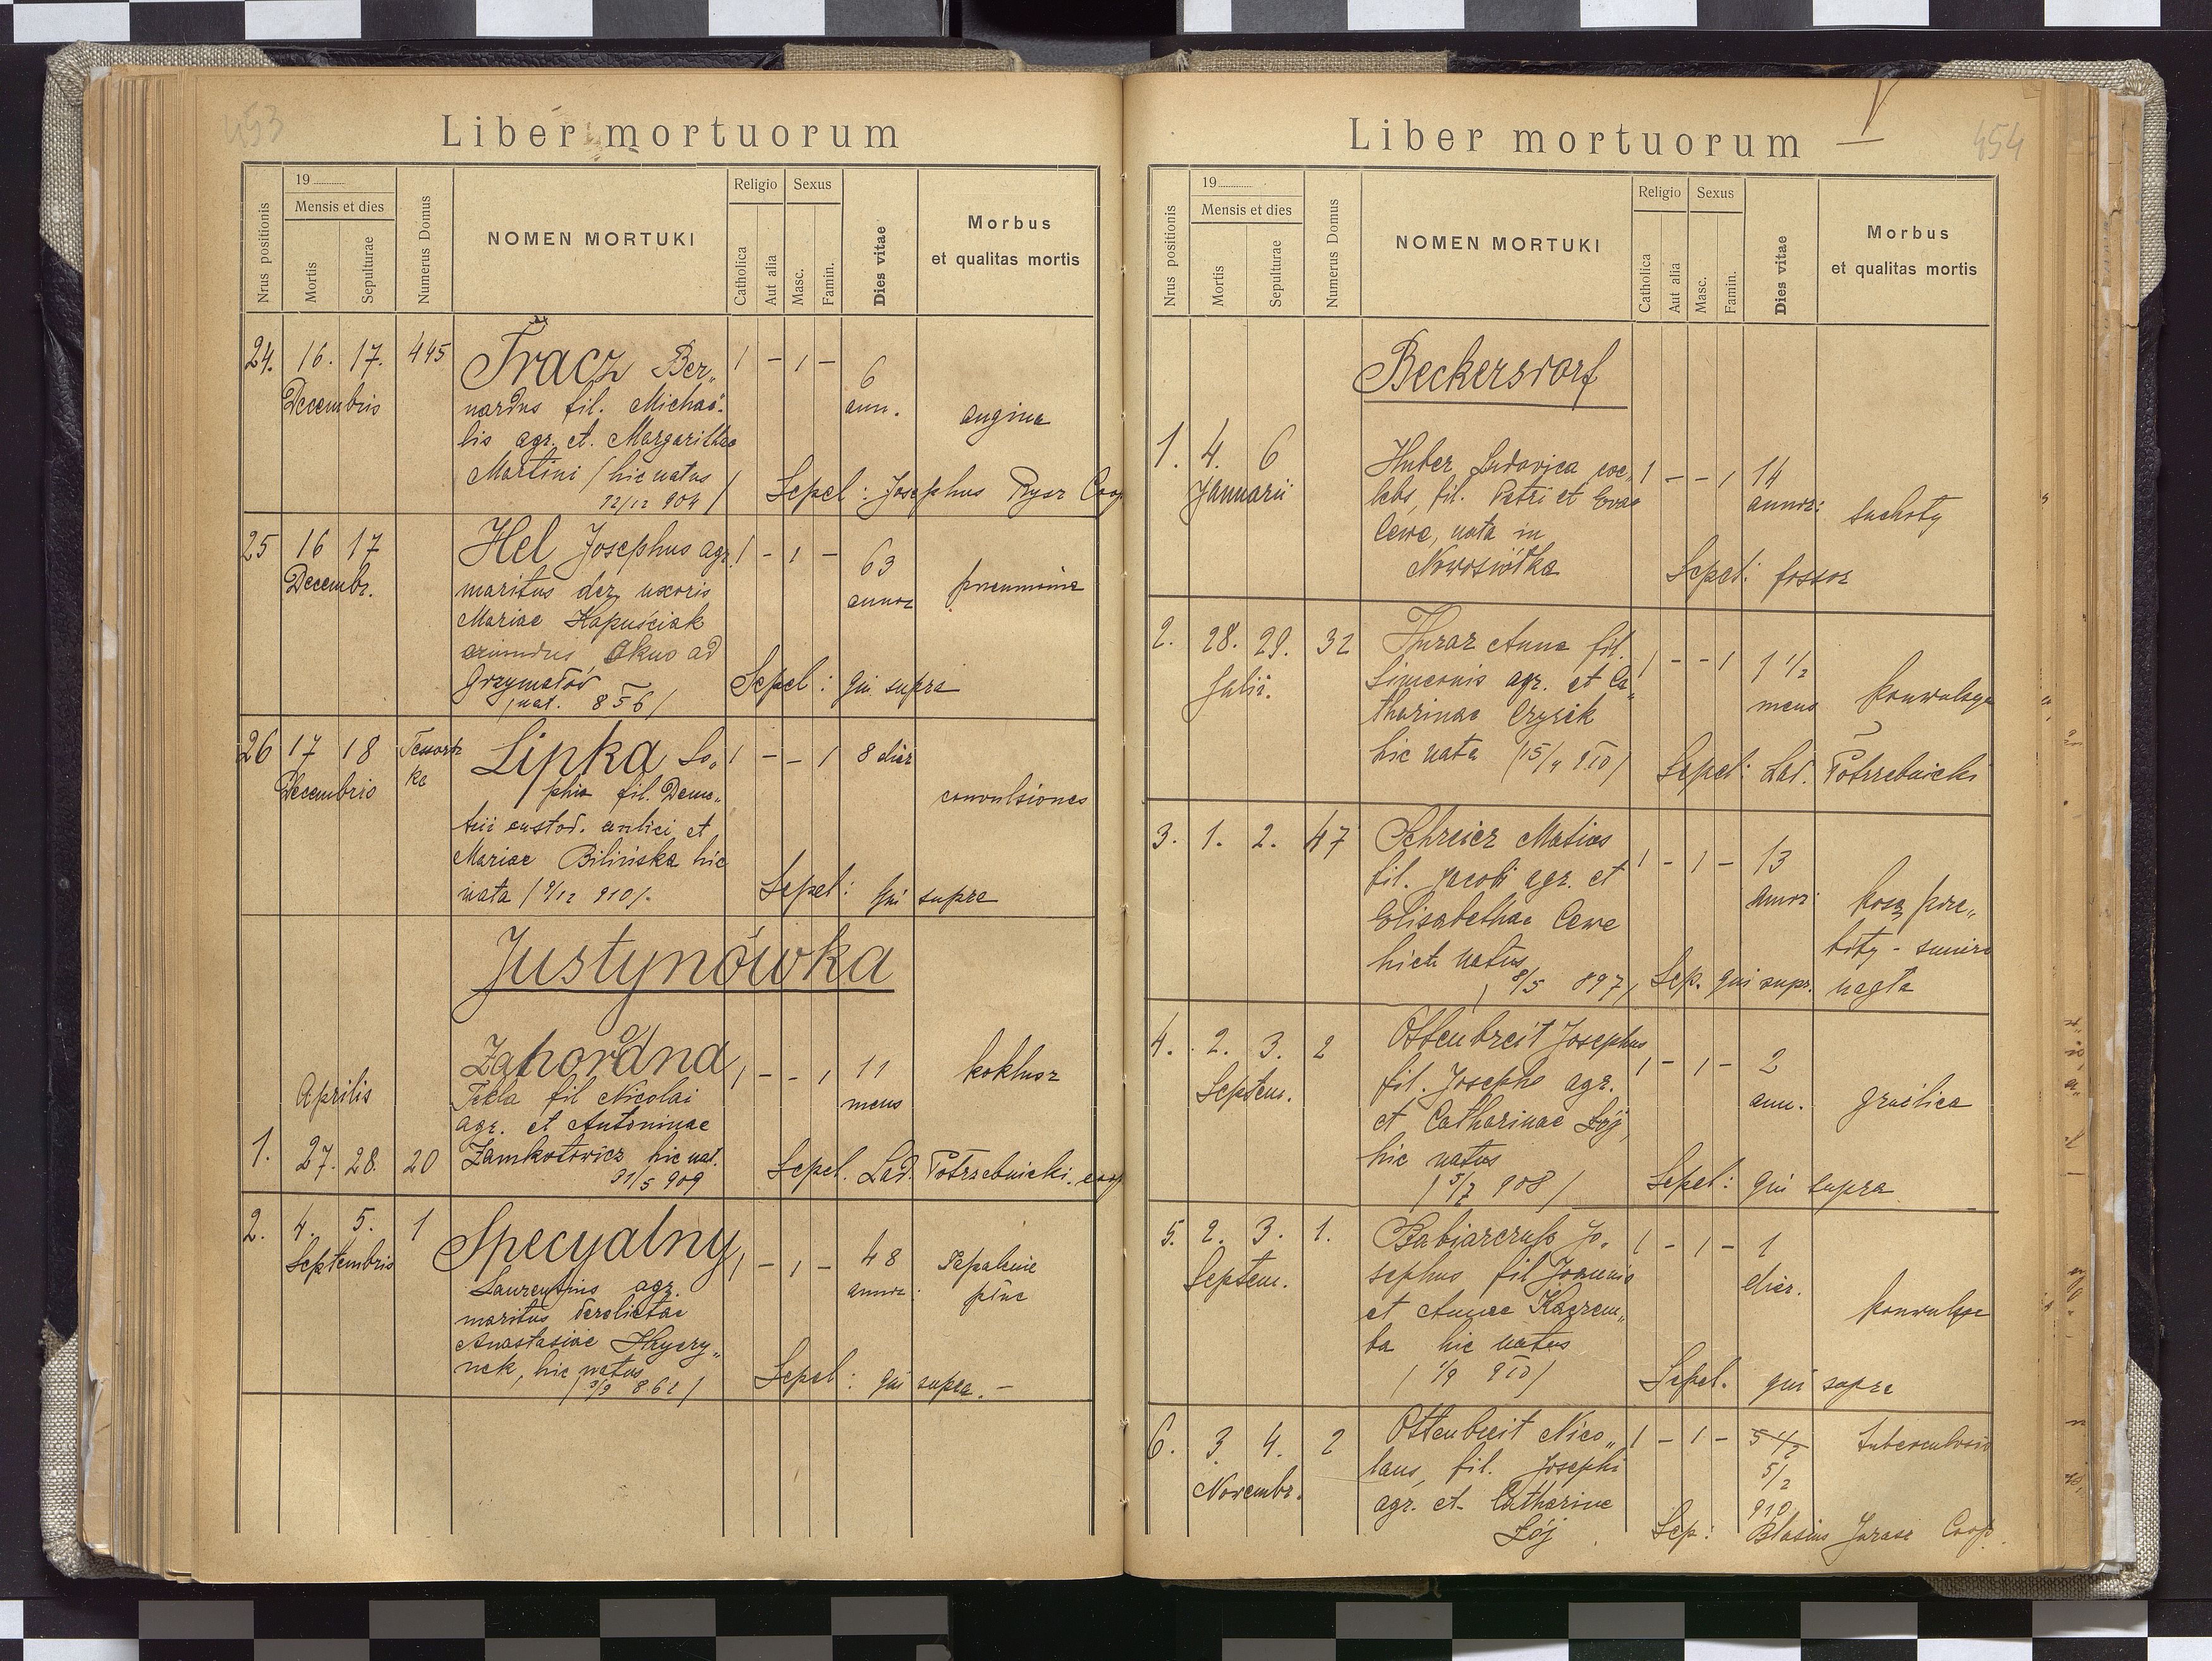 453
Liber mortuorum
Nrus positionis
19
Mensis et dies
Mortis
Sepulturae
Numerus Domus
NOMEN MORTUKI
Religio
Catholica
Aut alia
Sexus
Masc.
Famin.
Dies vitae
Morbus
et qualitas mortis
24. 16. 17. 445 Tracz Ber„ 1 - 1 - 6
Decembris nardus fil. Michaë- ann. angina
lis agr. et. Margarithae
Martini / hic natus Sepel: Josephus Rysz Coop
12/12 904 /
25 16 17 Hel Josephus agr. 1 - 1 - 63
Decembr. maritus der. uxoris annor pneumonia
Mariae Kapuściak
oriundus Okno ad
Grzymałów Sepel: qui supra
/nat. 856/
26 17 18 Lipka So„ 1 - - 1 8 dier
Decembris phia fil. Deme„ convulsiones
trii custod. aulici et
Mariae Bilińska hic
nata / 9/12 910/. Sepel: qui supra
Justynówka
Zahorodna 1 - - 1 11 koklusz
Aprilis Tekla fil Nicolai mens
agr. et Antoninae
1. 27. 28. 20 Zamkotowicz hic nat. Sepel. Lad. Potrzebnicki. coop
31/5 909
2. 4. 5. 1 Specyalny 1 - 1 - 48 Zapalenie
Septembris Laurentius agr. annor. płuc
maritus derelictae
Anastasiae Hryery„
nek, hic natus Sepel: qui supra. —
/ 3/9 862 /
454
Liber mortuorum
Nrus positionis
19
Mensis et dies
Mortis
Sepulturae
Numerus Domus
NOMEN MORTUKI
Religio
Catholica
Aut alia
Sexus
Masc.
Famin.
Dies vitae
Morbus
et qualitas mortis
Beckersdorf
1. 4. 6 Huber Ludovica coe„ 1 - - 1 14
Januarii lebs, fil. Petri et Evae annor: suchoty
Cewe, nata in
Nowosiółka Sepel: fossor
2. 28. 29. 32 Anna fil. 1 - - 1 1 1/2
Julii. Simeonis agr. et Ca„ mens konwulsye
tharinae Czyżek
hic nata (15/4 910/ Sepel: Lad. Potrzebnicki
3. 1. 2. 47 Schreier Matias 1 - 1 - 13
fil. Jacobi agr. et annor: prze„
Elisabethae Cewe bity - smierć
hic natus Sep. qui supr. nagła
/ 8/5 897/
4. 2. 3. 2 Ottenbreit Josephus 1 - 1 - 2
Septem. fil. Josephi agr. ann. gruźlica
et Catharinae Łój,
hic natus Sepel: qui supra
/ 5/7 908 /
5. 2. 3. 1. Babiarczuk Jo. 1 - 1 - 1
Septem. sephus fil Joannis dier. konwulsye
et Annae Kaczem„
ba hic natus
/ 1/9 910/ Sepel. qui supra
6. 3. 4. 2 Ottenbreit Nico„ 1 - 1 - 5 1/2 tuberculosis
Novembr. laus, fil. Josephi 5/2
agr. et Catharine 910
Łój Sep: Blasius Jurasz Coop.